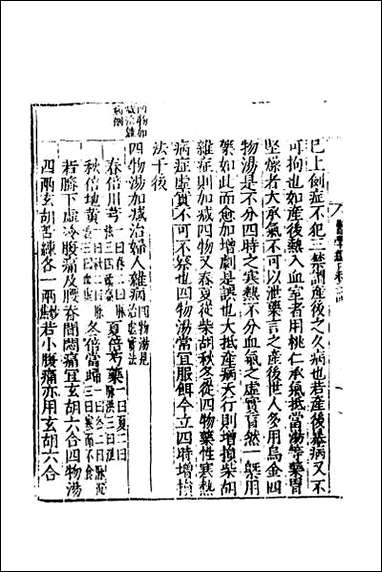 已上劍產不犯三禁謂產後之久病也若產後暴病又不
可拘也如產後熱入血室者用桃仁承氣抵當湯等藥胃
堅燥者大承氣不可以泄藥言之產後世人多用烏金四
物湯是不分四時之寒熱不分血氣之虛實盲然一槩用
藥如此而愈加增劇是誤也大抵產病天行則增損柴胡
雜症則加減四物又春夏從柴胡秋冬從四物藥性寒熱
病症虛實不可不察也四物湯常宜服餌今立四時增損
法于後
四物湯加減治婦人雜病
春倍川芎 夏倍芍藥
秋倍地黃 冬倍當歸
若臍下虛冷腹痛及腰脊間悶痛宜玄胡六合四物湯
四兩玄胡苦練各一兩 若小腹痛亦用玄胡六合